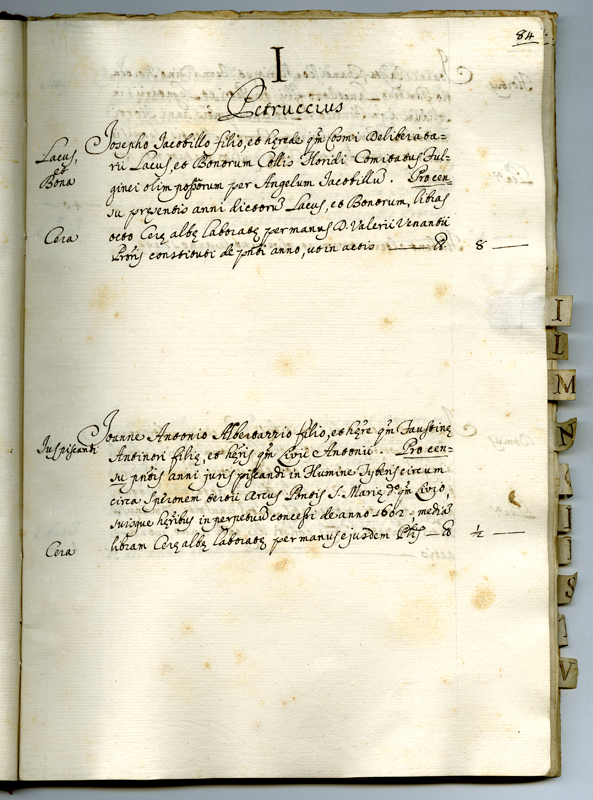 84
I
Petruccius
Lacus,
et
Bona
Josepho Jacobillo filio, et hęrede qm̃ Cosmi Deliberata-
rii Lacus, et Bonorum Collis Floridi Comitatus Ful-
ginei olim possorum per Angelum Jacobillũ. Pro cen-
su pręsentis anni dictorũ Lacus, et Bonorum, libras
Cera
octo Cerę albę laboratę per manus D. Valerii Venantii
Proris constituti de pnti anno, ut in actis — 8 —
Jus piscandi
Joanne Antonio Alberdarrio filio, et hęre qm̃ Faustinę
Antinori filię, et hęris qm̃ Livii Antonii. Pro cen-
su pntis anni juris piscandi in Flumine Tyberis circum
circa Speronem tertii Arcus Pontis S. Marię do qm̃ Livio,
suisque hęribus in perpetuũ concessi de anno 1602. mediã
Cera
libram Cerę albę laboratę per manus ejusdem Pris — ½ —
I
L
M
N
S
V